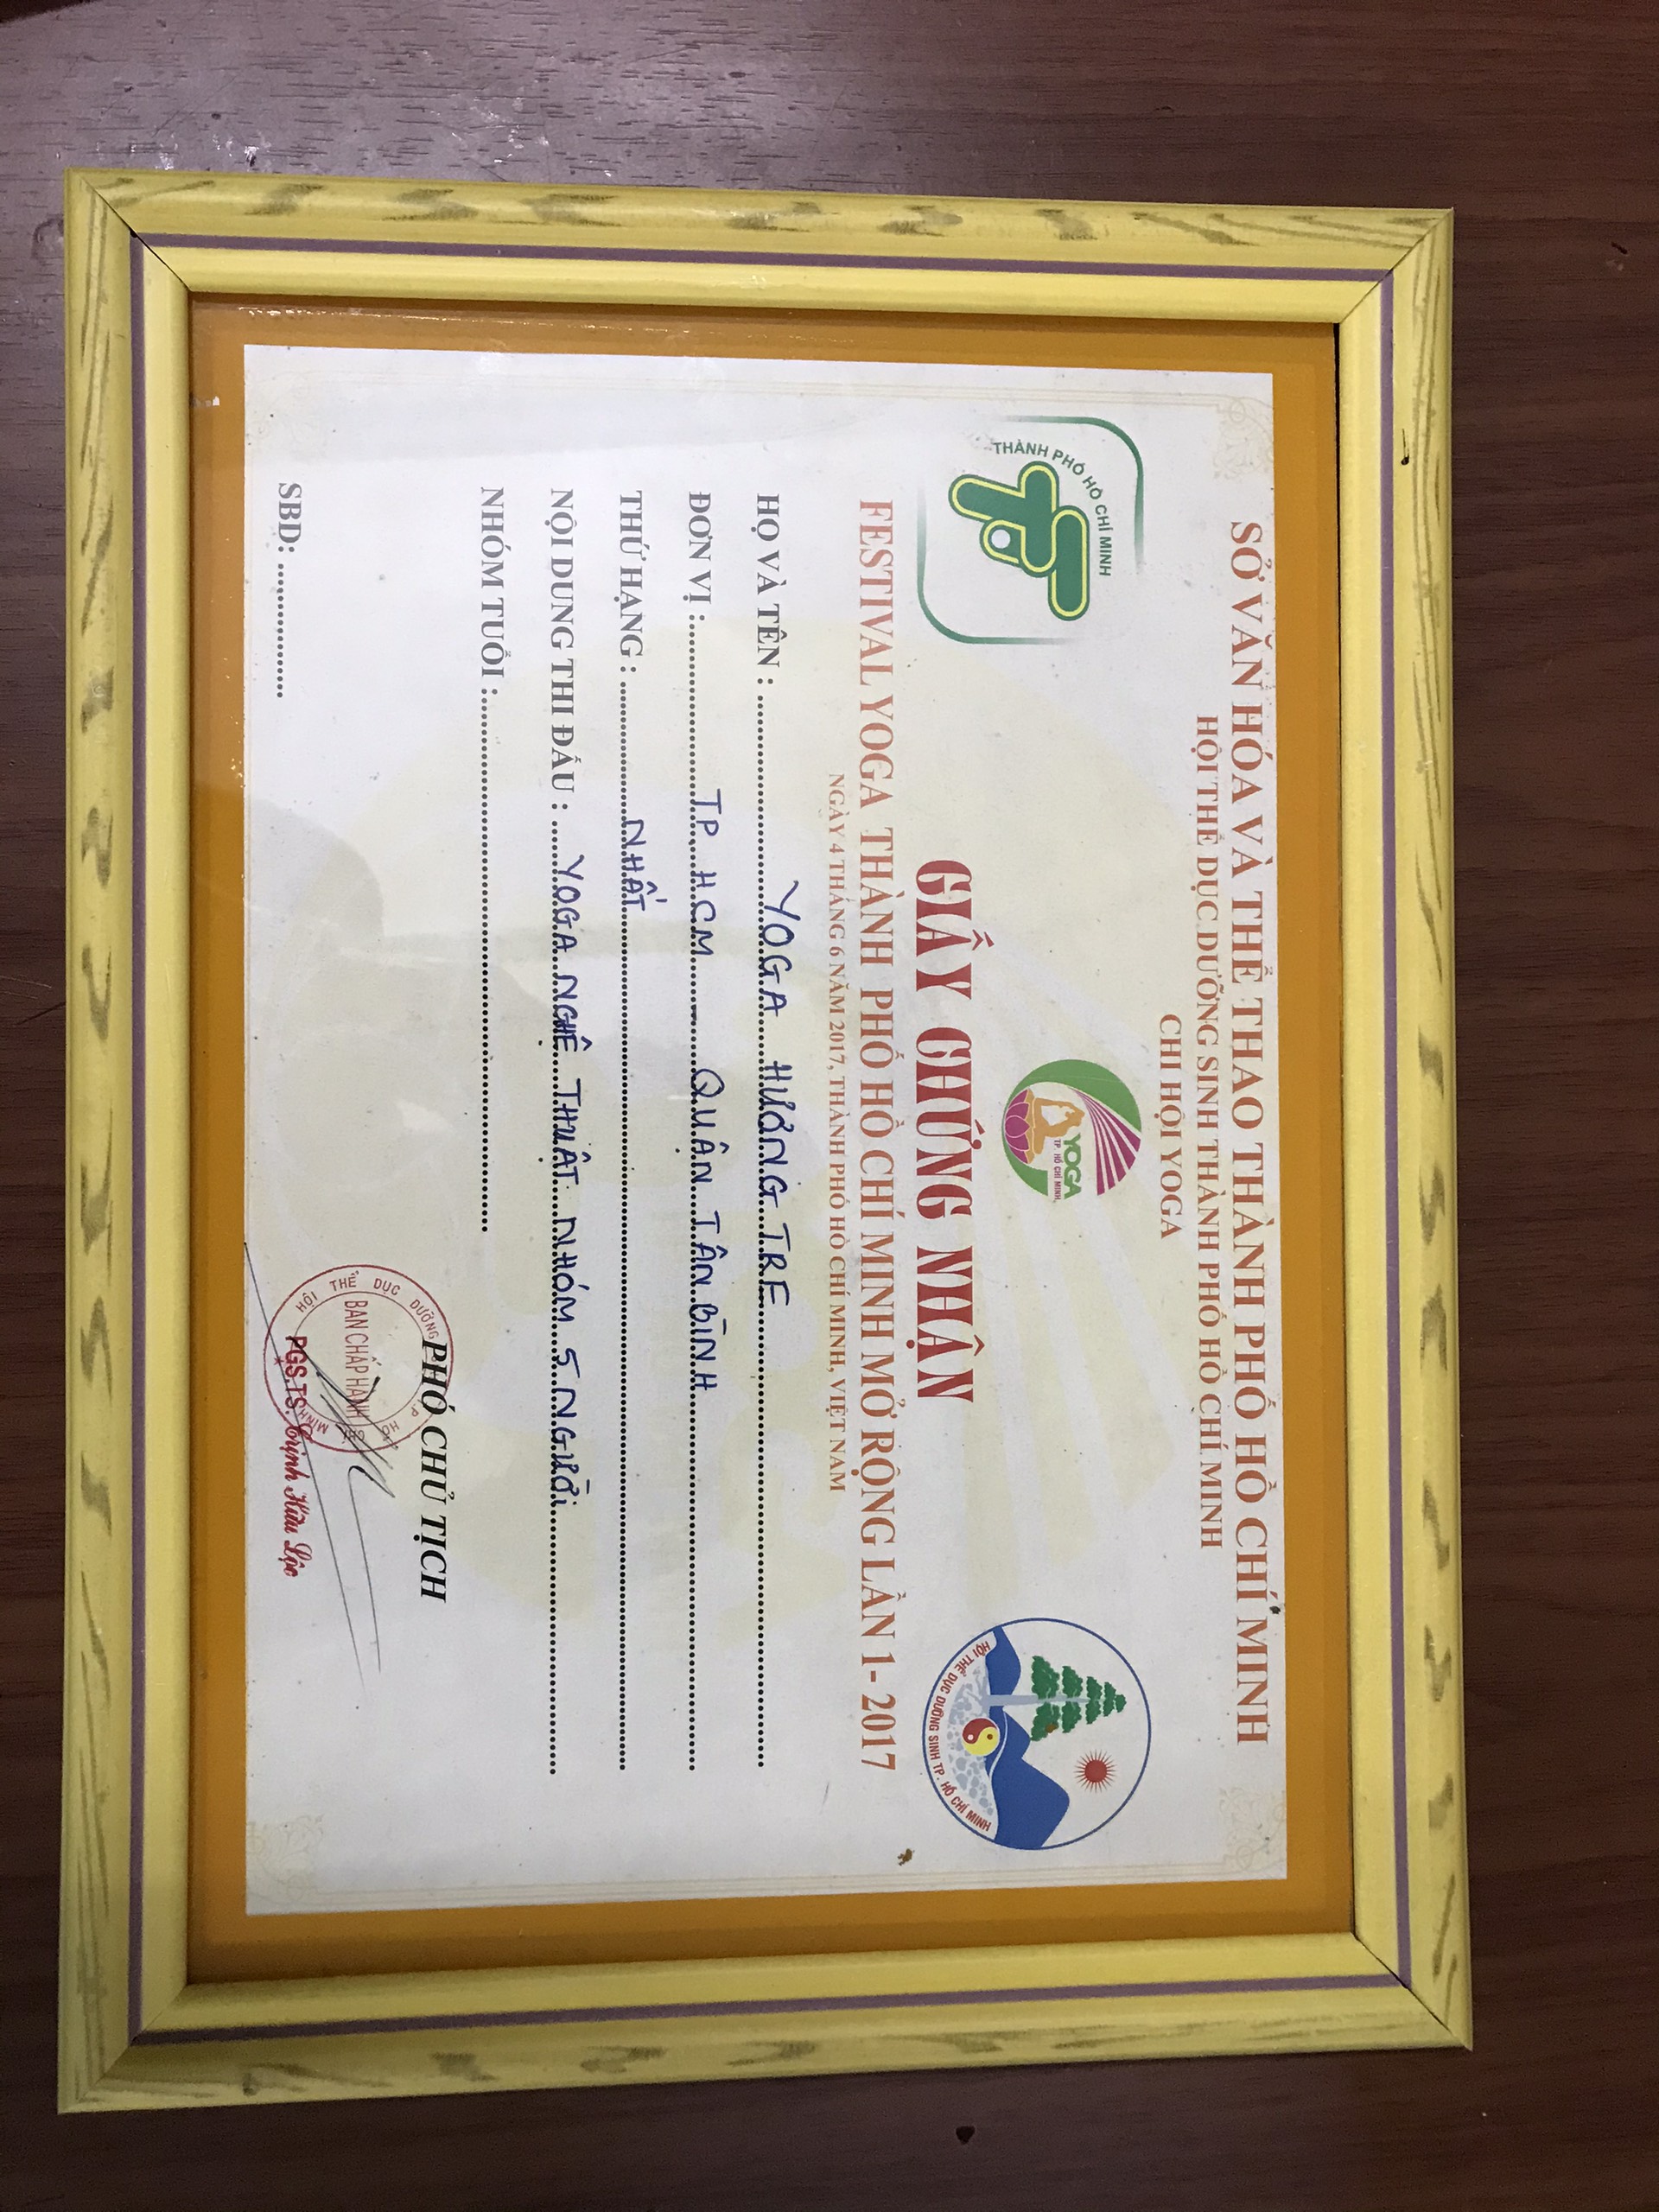 SỞ VĂN HÓA VÀ THỂ THAO THÀNH PHỐ HỒ CHÍ MINH
HỘI THỂ DỤC DƯỠNG SINH THÀNH PHỐ HỒ CHÍ MINH
CHI HỘI YOGA
THÀNH PHỐ HỒ CHÍ MINH
TT
YOGA
TP. HỒ CHÍ MINH
HỘI THỂ DỤC DƯỠNG SINH TP. HỒ CHÍ MINH
GIẤY CHỨNG NHẬN
FESTIVAL YOGA THÀNH PHỐ HỒ CHÍ MINH MỞ RỘNG LẦN 1- 2017
NGÀY 4 THÁNG 6 NĂM 2017, THÀNH PHỐ HỒ CHÍ MINH, VIỆT NAM
HỌ VÀ TÊN : YOGA HƯƠNG TRE
ĐƠN VỊ : TP. HCM - QUẬN TÂN BÌNH
THỨ HẠNG : NHẤT
NỘI DUNG THI ĐẤU : YOGA NGHỆ THUẬT NHÓM 5 NGƯỜi
NHÓM TUỔI :
PHÓ CHỦ TỊCH
HỘI THỂ DỤC DƯỠNG T.P HỒ CHÍ MINH
BAN CHẤP HÀNH
PGS.TS. Trịnh Hữu Lộc
SBD: